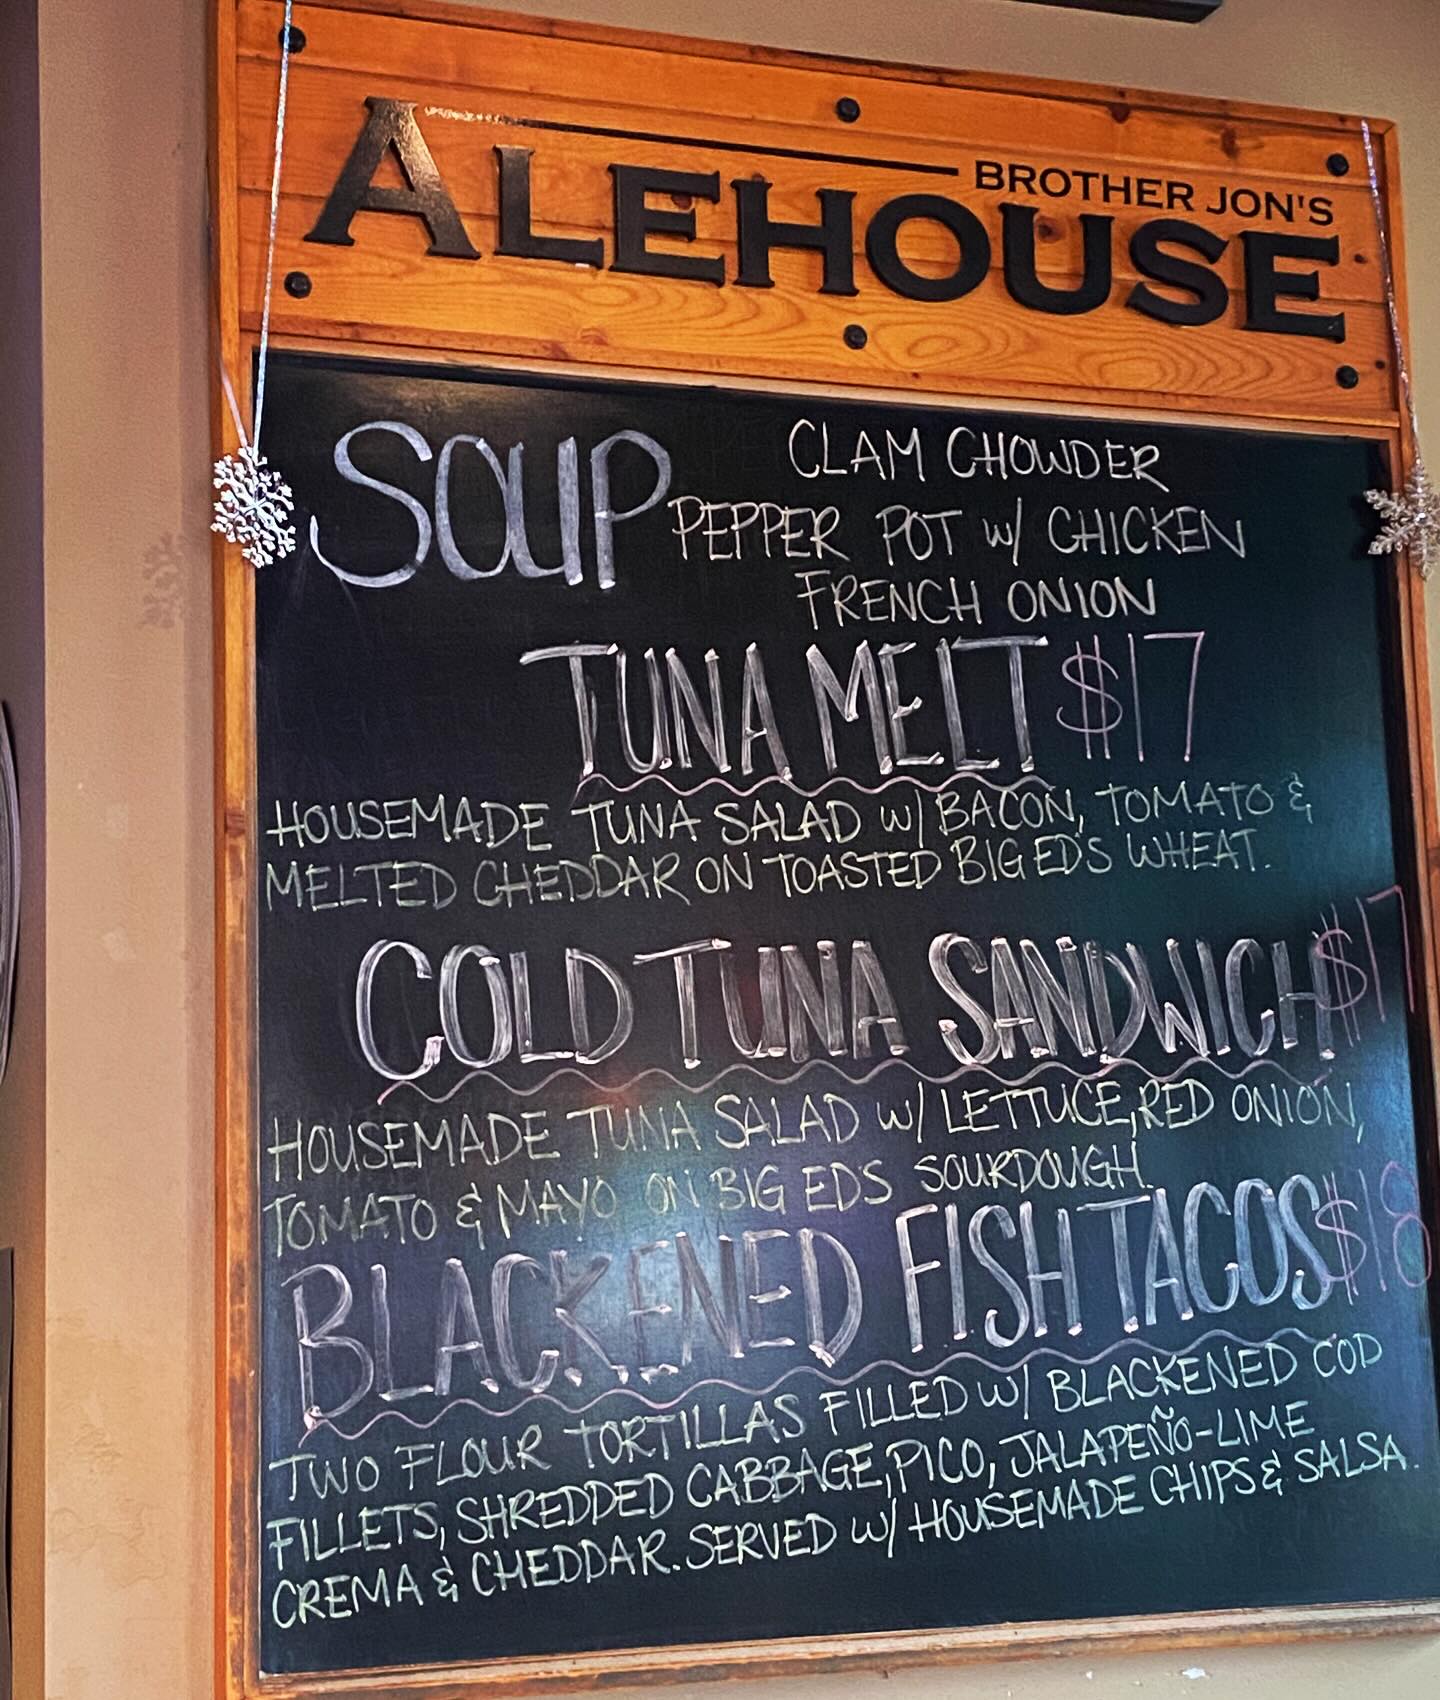 BROTHER JON'S
ALEHOUSE
SOUP
CLAM CHOWDER
PEPPER POT w/ CHICKEN
FRENCH ONION
TUNA MELT $17
HOUSEMADE TUNA SALAD w/ BACON, TOMATO &
MELTED CHEDDAR ON TOASTED BIG ED'S WHEAT.
COLD TUNA SANDWICH $17
HOUSEMADE TUNA SALAD w/ LETTUCE, RED ONION,
TOMATO & MAYO ON BIG ED'S SOURDOUGH.
BLACKENED FISH TACOS $18
TWO FLOUR TORTILLAS FILLED w/ BLACKENED COD
FILLETS, SHREDDED CABBAGE, PICO, JALAPEÑO-LIME
CREMA & CHEDDAR. SERVED w/ HOUSEMADE CHIPS & SALSA.